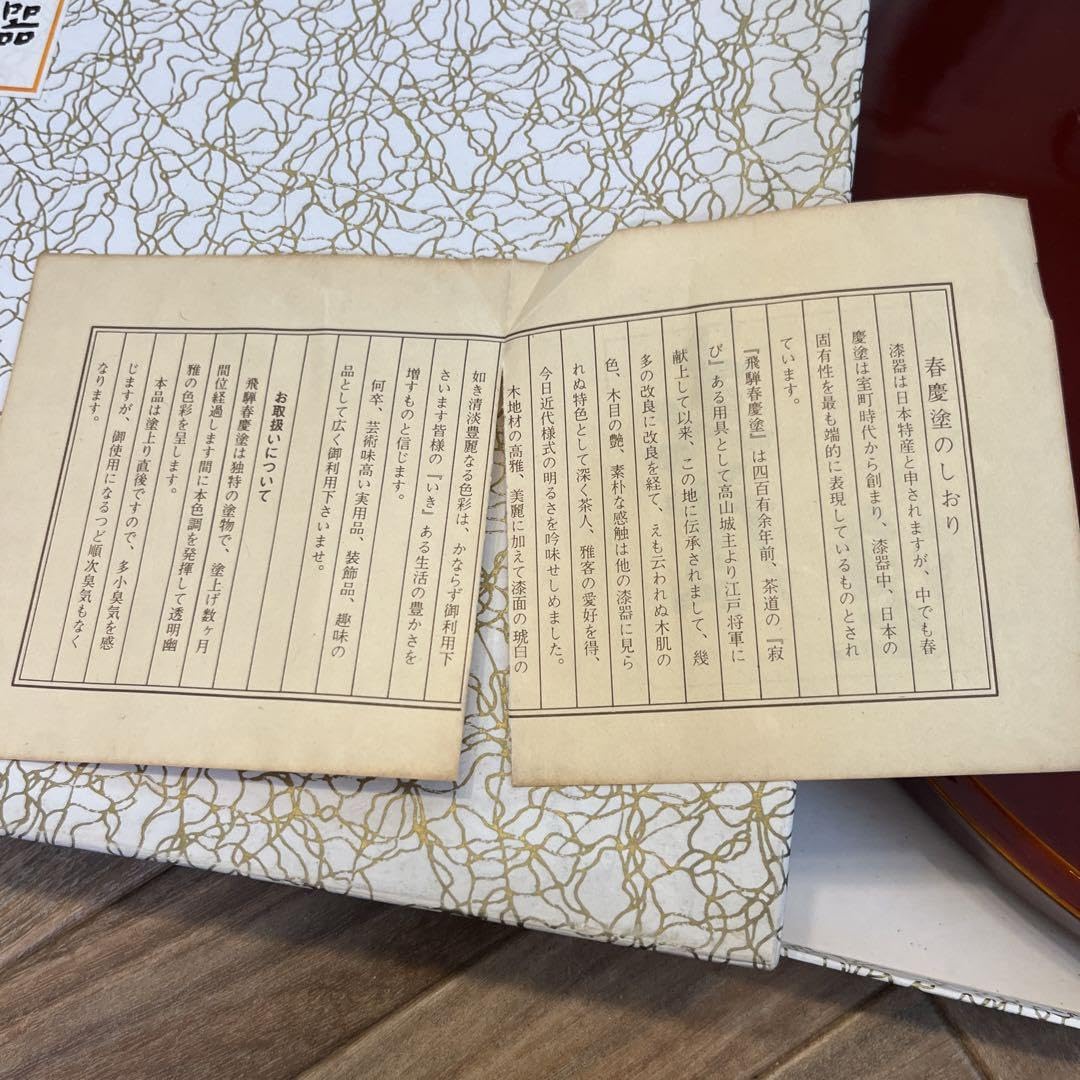 器
春慶塗のしおり
漆器は日本特産と申されますが、中でも春
慶塗は室町時代から創まり、漆器中、日本の
固有性を最も端的に表現しているものとされ
ています。
『飛騨春慶塗』は四百有余年前、茶道の『寂
び』ある用具として高山城主より江戸将軍に
献上して以来、この地に伝承されまして、幾
多の改良に改良を経て、えも云われぬ木肌の
色、木目の艶、素朴な感触は他の漆器に見ら
れぬ特色として深く茶人、雅客の愛好を得、
今日近代様式の明るさを吟味せしめました。
木地材の高雅、美麗に加えて漆面の琥白の
如き清淡豊麗なる色彩は、かならず御利用下
さいます皆様の『いき』ある生活の豊かさを
増すものと信じます。
何卒、芸術味高い実用品、装飾品、趣味の
品として広く御利用下さいませ。
お取扱いについて
飛騨春慶塗は独特の塗物で、塗上げ数ヶ月
間位経過します間に本色調を発揮して透明幽
雅の色彩を呈します。
本品は塗上り直後ですので、多小臭気を感
じますが、御使用になるつど順次臭気もなく
なります。